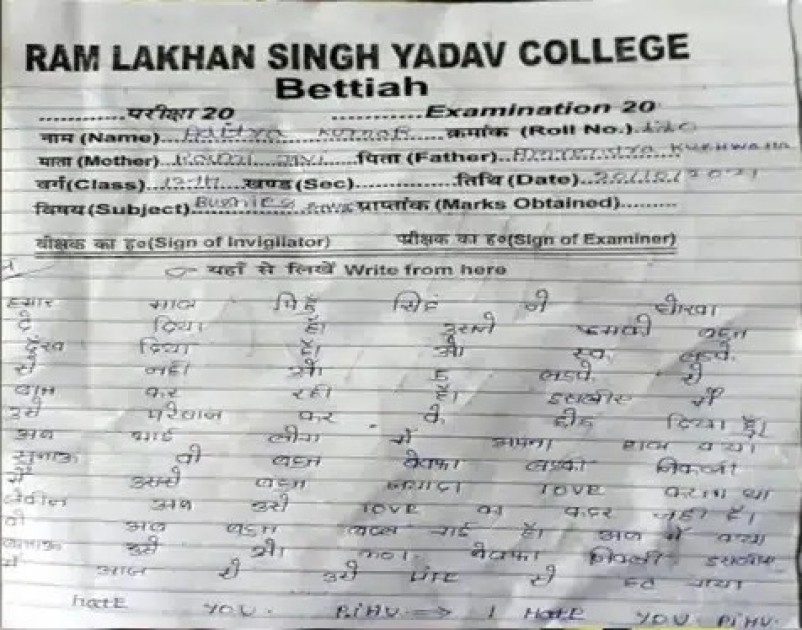 RAM LAKHAN SINGH YADAV COLLEGE
Bettiah
............परीक्षा 20 ............Examination 20
नाम (Name)... Aditya Kumar ...क्रमांक (Roll No.).
माता (Mother) ... पिता (Father)... Kushwaha
वर्ग(Class) ... खण्ड(Sec)..............तिथि (Date)..
विषय(Subject)... प्राप्तांक (Marks Obtained).........
वीक्षक का ह०(Sign of Invigilator) परीक्षक का ह०(Sign of Examiner)
यहाँ से लिखें Write from here
हमार साथ सिंह ने धोखा
दे दिया है। उसने हमको बहुत
दिया है। वो एक लड़के
से नही वो 5 लड़के से
बात कर रही है। इसलीए मैं
उसे कर के छोड़ दिया है।
अब भाई लोग मैं अपना हाल क्या
सुनाऊ वो बहुत बेवफा लड़की निकली
मैं उससे बहुत ज्यादा LOVE करता था
लेकीन अब उसे LOVE का कदर नही है।
वो अब बहुत बदल गई है। अब मैं क्या
बताऊ उसे बेवफा निकली इसलीए
मैं आज से उसे से हट गया
hate YOU. PiHU. ⇒ I Hate YOU PiHU.